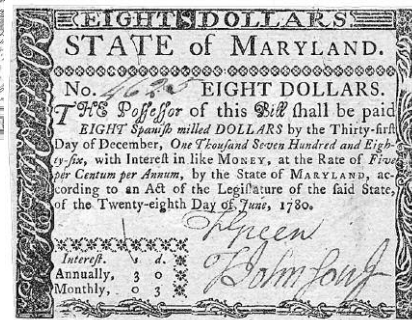 EIGHT DOLLARS
STATE of MARYLAND.
No. 4625 EIGHT DOLLARS.
THE Poſſeſſor of this Bill ſhall be paid
EIGHT Spaniſh milled DOLLARS by the Thirty-firſt
Day of December, One Thouſand Seven Hundred and Eigh-
ty-ſix, with Intereſt in like MONEY, at the Rate of Five
per Centum per Annum, by the State of MARYLAND, ac-
cording to an Act of the Legiſlature of the ſaid State,
of the Twenty-eighth Day of June, 1780.
Green
Intereſt. s d.
Annually, 3 0
Monthly, 0 3
T Johnson Jr